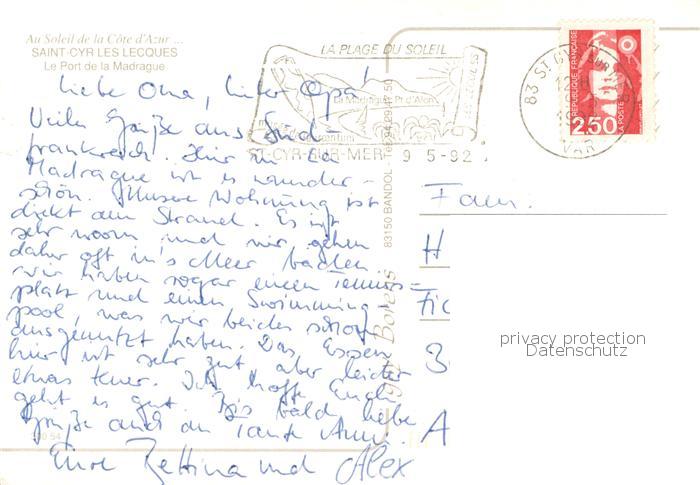 Au Soleil de la Côte d'Azur ...
SAINT-CYR LES LECQUES
Le Port de la Madrague
LA PLAGE DU SOLEIL
La Madrague Pt d'Alon
ST-CYR-SUR-MER 9 5-92
83 ST CYR SUR
VAR
REPUBLIQUE FRANÇAISE
2,50
LA POSTE
Liebe Oma, lieber Opa!
Viele Grüße aus Süd-
frankreich. Hier in der
Madrague ist es wunder-
schön. Unsere Wohnung ist
direkt am Strand. Es ist
sehr warm und wir gehen
daher oft in's Meer baden.
Wir haben sogar einen Tennis-
platz und einen Swimming-
pool, was wir beides schon
ausgenutzt haben. Das Essen
hier ist sehr gut aber leider
etwas teuer. Ich hoffe Euch
geht es gut. Bis bald liebe
Grüße auch an Tante Anni.
Eure Bettina und Alex
83150 BANDOL
Borens
Fam.
H
Fic
3
A
privacy protection
Datenschutz